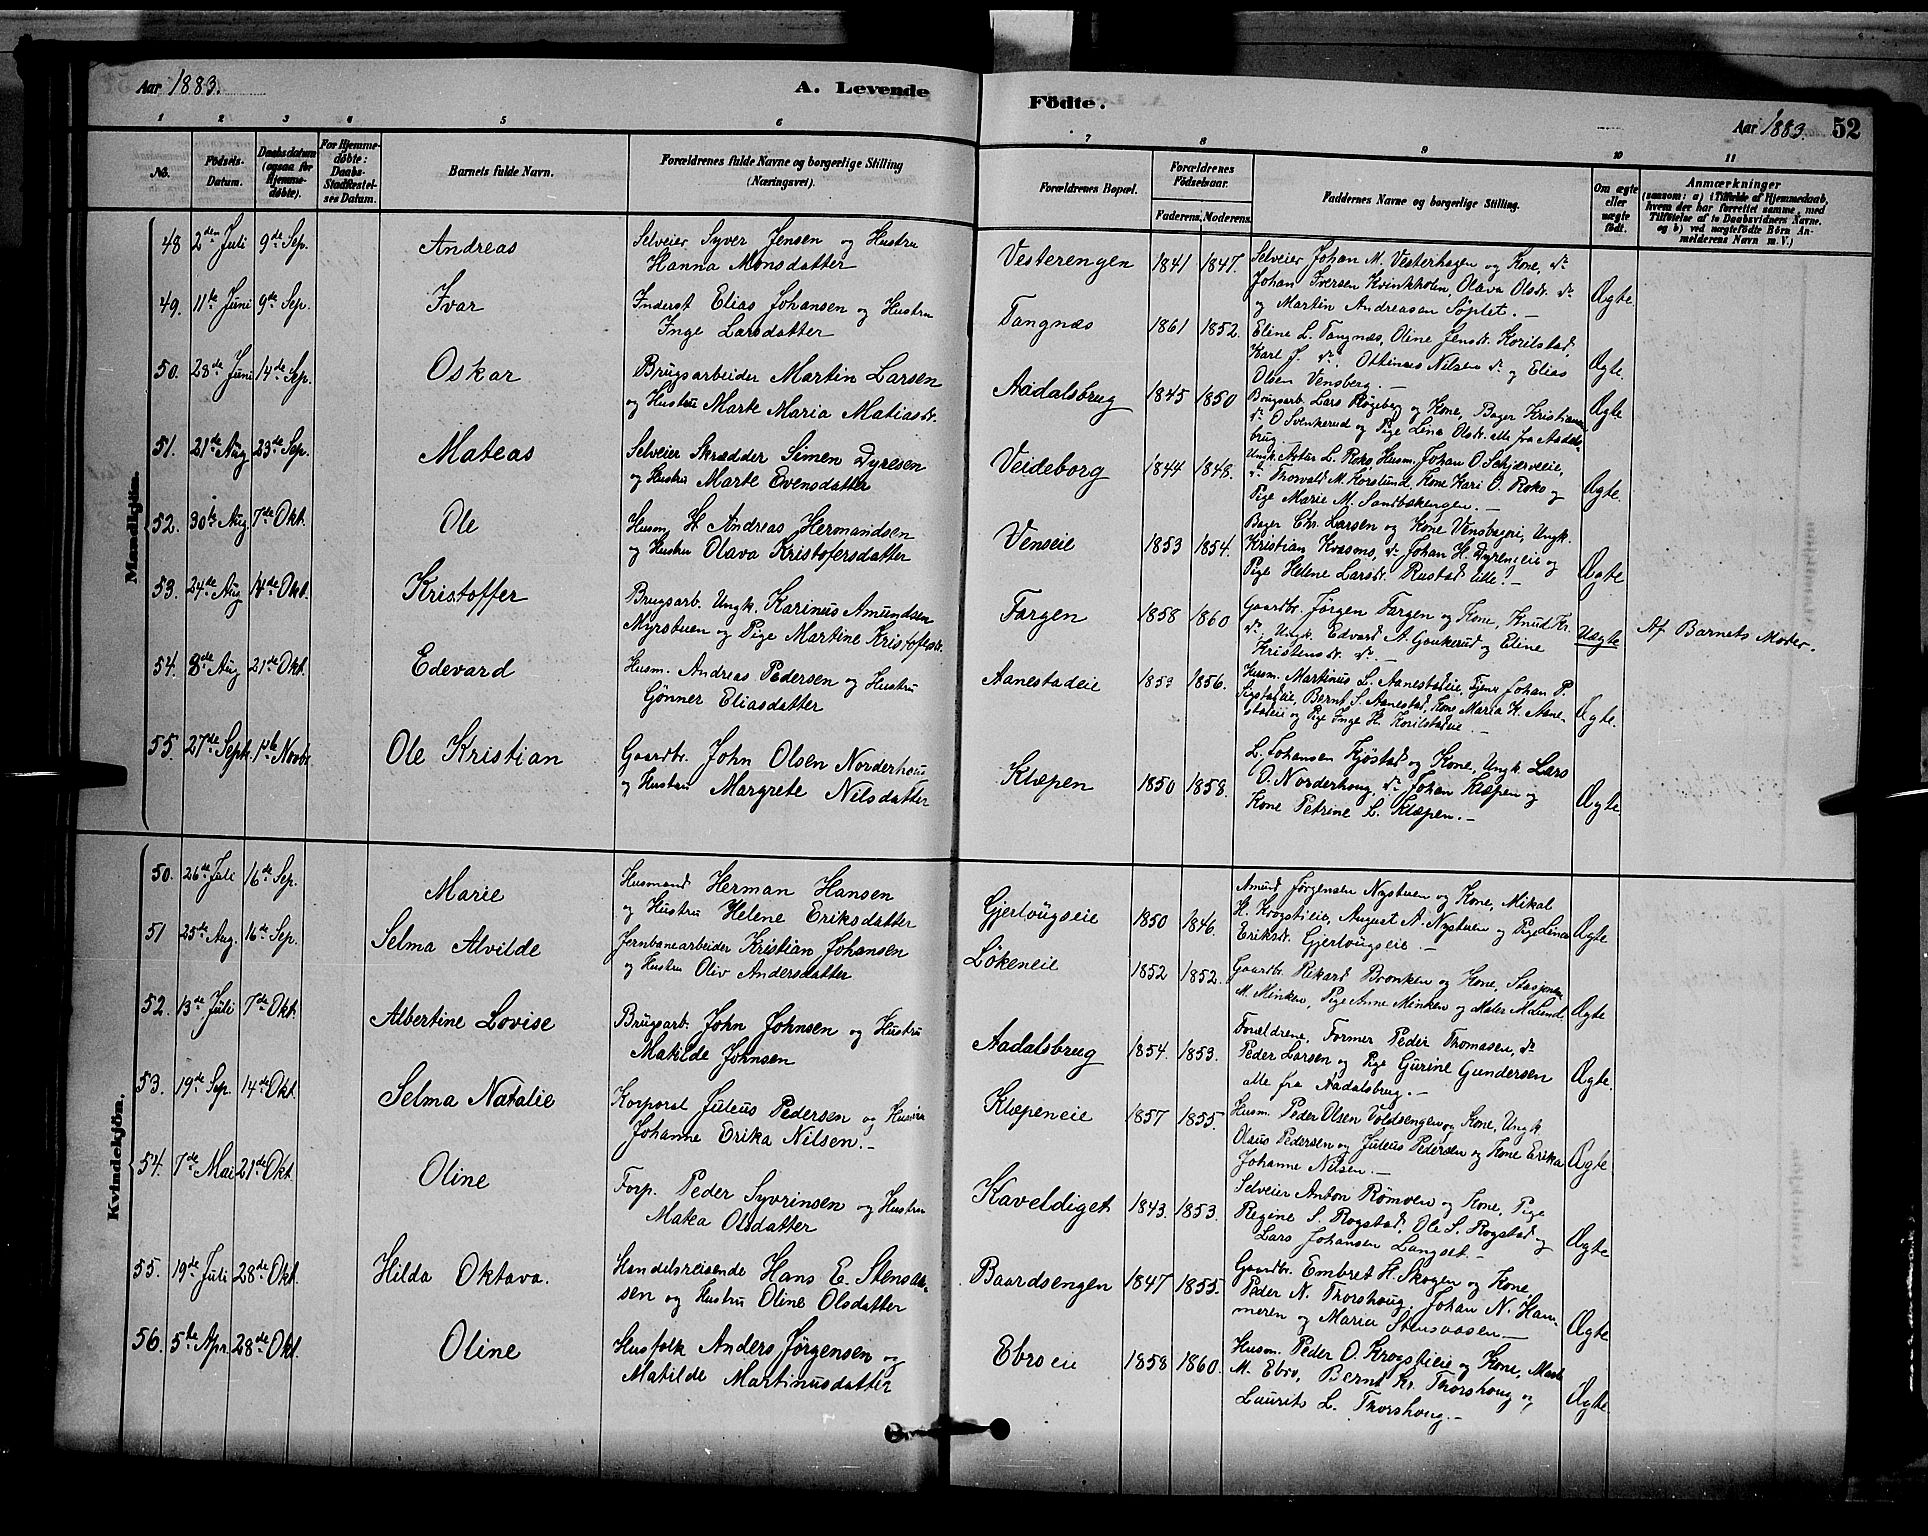 Aar 1883.
A. Levende
Födte.
Aar 1883.
52
1 2 3 4 5 6
7 8 9 10 11
No.
Födsels-Datum.
Daabsdatum (ogsaa for Hjemmedøbte).
For Hjemmedøbte: Daabs-Stadfæstelses Datum.
Barnets fulde Navn.
Forældrenes fulde Navne og borgerlige Stilling (Næringsvei).
Forældrenes Bopæl.
Forældrenes Födselsaar.
Faderens. Moderens.
Faddernes Navne og borgerlige Stilling.
Om ægte eller uægte født.
Anmærkninger
(saasom: a) i Tilfælde af Hjemmedaab, hvem der har forrettet samme, med Tilföielse af to Daabsvidners Navne. og b) ved uægtefödte Börn Anmelderens Navn m. V.)
Mandkjön.
48 2den Juli 9de Sep. Andreas
Selveier Syver Jensen og Hustru
Hanna Monsdatter
Vesterengen 1841 1847.
Selveier Johan M. Vesterhagen og Kone, do
Johan Iversen Kvinkholen, Olava Olsdr. do
og Martin Andreasen Søplet. –
Ægte.
49. 11te Juni 9de Sep. Ivar
Inderst Elias Johansen og Hustru
Inge Larsdatter
Tangnæs 1861 1852.
Eline L. Tangnæs, Oline Jensdr. Korilstad,
Karl J. do, Ottinus Nilsen do og Elias
Olsen Vensberg. –
Ægte.
50. 28de Juni 14de Sep. Oskar
Brugsarbeider Martin Larsen
og Hustru Marte Maria Matiasdr.
Aadalsbrug 1845 1850
Brugsarb. Lars Røgeberg og Kone, Bager Kristiansen
do O. Svenkerud og Pige Lina Olsdr. alle fra Aadals-
brug. –
Ægte
51. 21de Aug 23de Sep. Mateas
Selveier Skrædder Simen Dyresen
og Hustru Marte Evensdatter
Veideborg 1844 1848.
Ungk. Artur L. Roko, Husm. Johan O. Schjærveeie,
do Thorvald M. Korslund, Kone Kari O. Roko og
Pige Marie M. Sandbækengen. –
Ægte.
52. 30te Aug. 7de Okt. Ole
Husm. St. Andreas Hermandsen
og Hustru Olava Kristofersdatter
Venseie 1853 1854.
Bager Chr. Larsen og Kone Vensbageri, Ungk.
Kristian Kvasons, do Johan H. Dyreneie og
Pige Helene Larsdr. Rustad lille. –
Ægte
53. 24de Aug 14de Okt. Kristoffer
Brugsarb. Ungk. Karinus Amundsen
Myrstuen og Pige Martine Kristofersdr.
Fargen 1858 1860
Gaardbr. Jørgen Fargen og Kone, Knud Kr.
do, Ungk. Edvard A. Gaukerud og Eline
Kristensdr. do. –
Uægte
Af Barnets Moder.
54. 8de Aug 21de Okt. Edevard
Husm. Andreas Pedersen og Hustru
Gjønner Eliasdatter
Aanestadeie 1859 1856.
Husm. Martinus L. Aanestadeie, Tjener Johan P.
Sigstadeie, Bernt S. Aanestad, Kone Maria K. Aane-
stadeie og Pige Inge H. Korilstadeie. –
Ægte.
55. 27de Septr. 1ste Novbr. Ole Kristian
Gaardbr. John Olsen Norderhoug
og Hustru Margrete Nilsdatter
Klæpen 1850 1858.
L. Johansen Kjøstad og Kone, Ungk. Lars
O. Norderhoug, do Johan Klæpen og
Kone Petrine L. Klæpen. –
Ægte
Kvindekjön.
50. 26de Juli 16de Sep. Marie
Husmand Herman Hansen
og Hustru Helene Eriksdatter
Gjerlougseie 1850 1846.
Amund Jørgensen Nystuen og Kone, Mikal
H. Krogstieie, August A. Nystuen og Pige Lina
Eriksdr. Gjerlougseie. –
Ægte
51 25de Aug. 16de Sep. Selma Alvilde
Jernbanearbeider Kristian Johansen
og Hustru Oliv Andersdatter
Lökeneie 1852 1852.
Gaardbr. Rikard Bronken og Kone,
M. Minken, Pige Anne Minken og Maler M. Lund.
Ægte
52. 13de Juli 7de Okt. Albertine Lovise
Brugsarb. John Johnsen og Hustru
Matilde Johnsen
Aadalsbrug 1854. 1853.
Forældrene, Former Peder Thomasen, do
Peder Larsen og Pige Gurine Gundersen
alle fra Aadalsbrug. –
Ægte.
53. 19de Sep. 14de Okt. Selma Natalie
Korporal Juleus Pedersen og Hustru
Johanne Erika Nilsen. –
Klæpeneie 1857 1855.
Husm. Peder Olsen Voldsengen og Kone, Ungk
Olaus Pedersen og Juleus Pedersen og Kone Erika
Johanne Nilsen. –
Ægte.
54. 7de Mai 21de Okt. Oline
Forp. Peder Syvrinsen og Hustru
Matea Olsdatter
Kaveldiget 1843. 1853.
Selveier Anton Rømoen og Kone, Pige
Regine S. Rogstad, Ole S. Rogstad og
Lars Johansen Langset. –
Ægte
55. 19de Juli 28de Okt. Hilda Oktava.
Handelsreisende Hans E. Stensaa-
sen og Hustru Oline Olsdatter
Baardsengen 1847 1855.
Gaardbr. Embret H. Skogen og Kone,
Peder N. Thorshoug, Johan N. Ham-
meren og Maria Stensaasen –
Ægte
56. 5te Apr. 28de Okt. Oline
Husfolk Anders Jørgensen og
Matilde Martinusdatter
Ebroeie 1858 1860.
Husm. Peder O. Krogstieie og Kone, Marte
M. Ebro, Bernt Kr. Thorshoug og
Laurits L. Thorshoug. –
Ægte